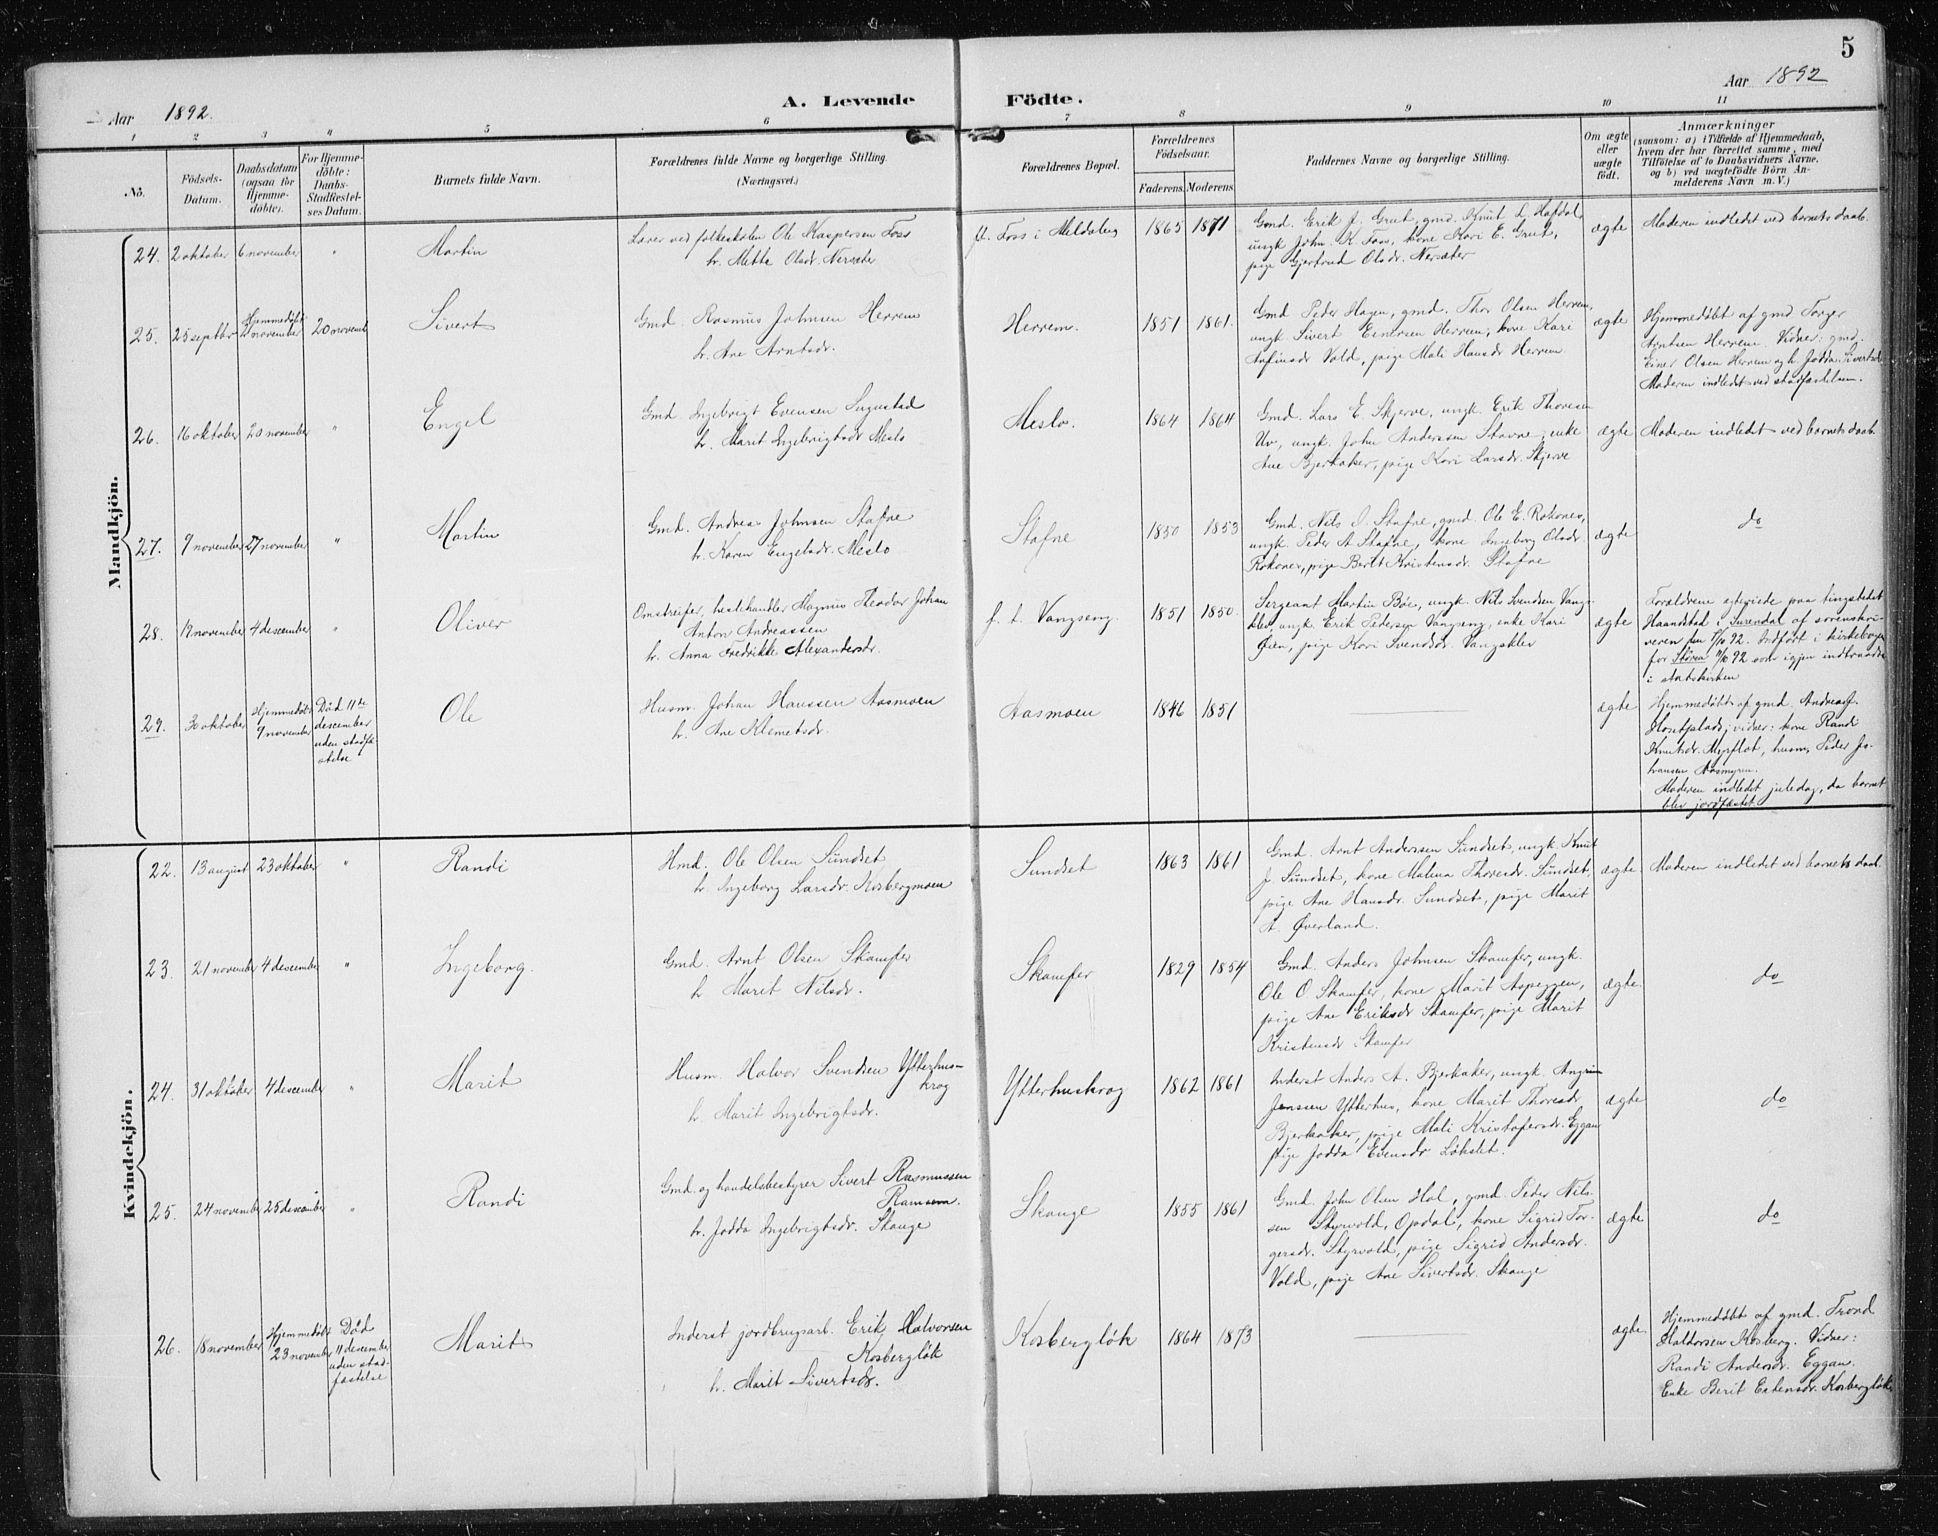 5
Aar 1892.
A. Levende Födte.
Aar 1892
1 2 3 4 5 6 7 8 9 10 11
No.
Födsels-Datum.
Daabsdatum (ogsaa for Hjemmedøbte).
For Hjemmedöbte: Daabs-Stadfæstelses Datum.
Barnets fulde Navn.
Forældrenes fulde Navne og borgerlige Stilling. (Næringsvei.)
Forældrenes Bopæl.
Forældrenes Födselsaar.
Faderens. Moderens.
Faddernes Navne og borgerlige Stilling.
Om ægte eller uægte födt.
Anmærkninger
(saasom: a) i Tilfælde af Hjemmedaab, hvem der har forrettet samme, med Tilföielse af to Daabsvidners Navne, og b) ved uægtefödte Börn Anmelderens Navn m. V.)
Mandkjön.
24. 2 oktober 6 november " Martin
Lærer ved folkeskolen Ole Kaspersen Foss
h. Mette Olsdr. Nersæter
ft. Foss i Meldalen 1865 1871
Gmd. Erik J. Grut, gmd. Knut L. Hafdal,
ungk John. K. Foss, kone Kari E. Grut,
pige Gjertrud Olsdr. Nersæter
ægte
Moderen indledet ved barnets daab.
25. 25 septbr Hjemmedøbt 2 november 20 novemb Sivert
Gmd. Rasmus Johnsen Herrem
h. Ane Arntsdr.
Herrem. 1851 1861.
Gmd Peder Hagen, gmd. Thor Olsen Herrem,
ungk. Sivert Einersen Herrem, kone Kari
Anfinsdr Vold, pige Mali Hansdr Herrem
ægte
Hjemmedøbt af gmd Torger
Arntsen Herrem. Vidner: gmd.
Einer Olsen Herrem og h. Jodda Sivertsdr
Moderen indledet ved stadfæstelsen.
26. 16 oktober 20 november " Engel
Gmd. Ingebrigt Evensen
h. Marit Ingebrigtsdr Meslo
Meslo. 1864 1864
Gmd. Lars E. Skjerve, ungk. Erik Thoresen
Uv, ungk. John Anderssen Stavne, enke
Ane Bjerkaker, pige Kari Larsdr. Skjerve
ægte
Moderen indledet ved barnets daab.
27. 9 november 27 november " Martin
Gmd. Andreas Johnsen Stafne
h. Karen Engelsdr. Meslo
Stafne 1850 1853
Gmd. Nils J. Stafne, gmd. Ole E. Rokones,
ungk. Peder A Stafne, kone Ingeborg Olsdr.
Rokones, pige Berit Kristensdr. Stafne
ægte
do
28. 19 november 4 descember " Oliver
Omstreifer, hestehandler Magnus Theodor Johan
Anton Andreassen
h. Anna Fredrikke Alexandersdr.
f. t. Vangseng. 1851 1850.
Sergeant Martin Bøe, ungk. Nils Svendsen Vangs-
klev, ungk. Erik Pedersen Vangseng, enke Kari
Øien, pige Kari Svendsdr. Vangsklev
ægte
Forældrene egteviede paa tingstedet
Haanstad i Surendal af sorenskri-
veren den 92. Indført i kirkebogen
for Støren 92 som igjen indtraadte
i statskirken
29. 30 oktober Hjemmedøbt 9 november Død 11te descember uden stadfæstelse Ole
Husm. Johan Hanssen Aasmoen
h. Ane Klemetsdr.
Aasmoen 1846 1851
ægte
Hjemmedøbt af gmd. Andreas J.
vidner: kone Randi
Knutsdr. Mypflot, husm. Peder Jo-
hansen Aasmyren.
Moderen indledet juledag, da barnet
blev jordfæstet.
Kvindekjön.
22. 13 august 23 oktober " Randi
Hmd. Ole Olsen Sundset
h. Ingeborg Larsdr. Kosbergmoen
Sundset 1863 1861
Gmd. Arnt Anderssen Sundset, ungk Knut
J Sundset, kone Malena Thoresdr. Sundset,
pige Ane Hansdr. Sundset, pige Marit
A. Øverland.
ægte
Moderen indledet ved barnets daab
23. 21 november 4 descember " Ingeborg.
Gmd. Arnt Olsen Skamfer
h. Marit Nilsdr.
Skamfer 1829 1854
Gmd. Anders Johnsen Skamfer, ungk.
Ole O Skamfer, kone Marit Aspeggen,
pige Ane Eriksdr Skamfer, pige Marit
Kristensdr Skamfer
ægte.
do
24. 31 oktober 4 descember " Marit
Husm. Halvor Svendsen Ytterhus-
krog
h. Marit Ingebrigtsdr.
Ytterhuskrog 1862 1861
Inderst Anders A. Bjerkaker, ungk.
Jenssen Ytterhus, kone Marit Thoresdr
Bjerkaker, pige Mali Kristofersdr. Eggan
pige Jodda Evensdr Løkslet.
ægte
do
25. 24 november 25 descember " Randi
Gmd. og handelsbestyrer Sivert Rasmussen
Ramsem.
h. Jodda Ingebrigtsdr. Skauge
Skauge 1855 1861
Gmd. John Olsen Hol, gmd. Peder Nils-
sen Styrvold, Opdal, kone Sigrid Tor-
gersdr. Styrvold, pige Sigrid Andersdr.
Vold, pige Ane Sivertsdr. Skauge
ægte
do
26. 18 november Hjemmedøbt 23 november Død 11 descember uden stadfæstelse Marit
Inderst jordbrugsarb. Erik Halvorsen
Kosbergløk
h. Marit Sivertsdr.
Kosbergløk 1864 1873
ægte
Hjemmedøbt af gmd. Trond
Haldorsen Kosberg. Vidner:
Randi Andersdr. Eggan.
Enke Berit Estensdr. Kosbergløk